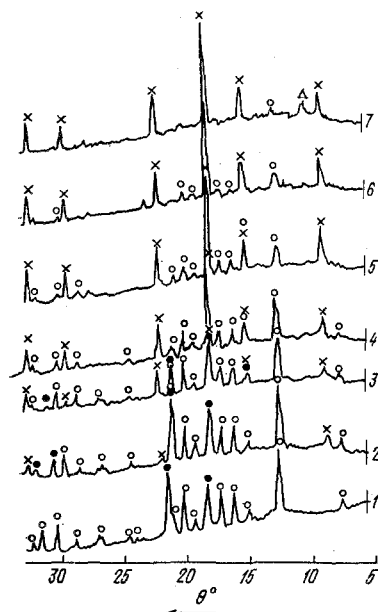 7
6
5
4
3
2
1
30 25 20 15 10 5
θ°